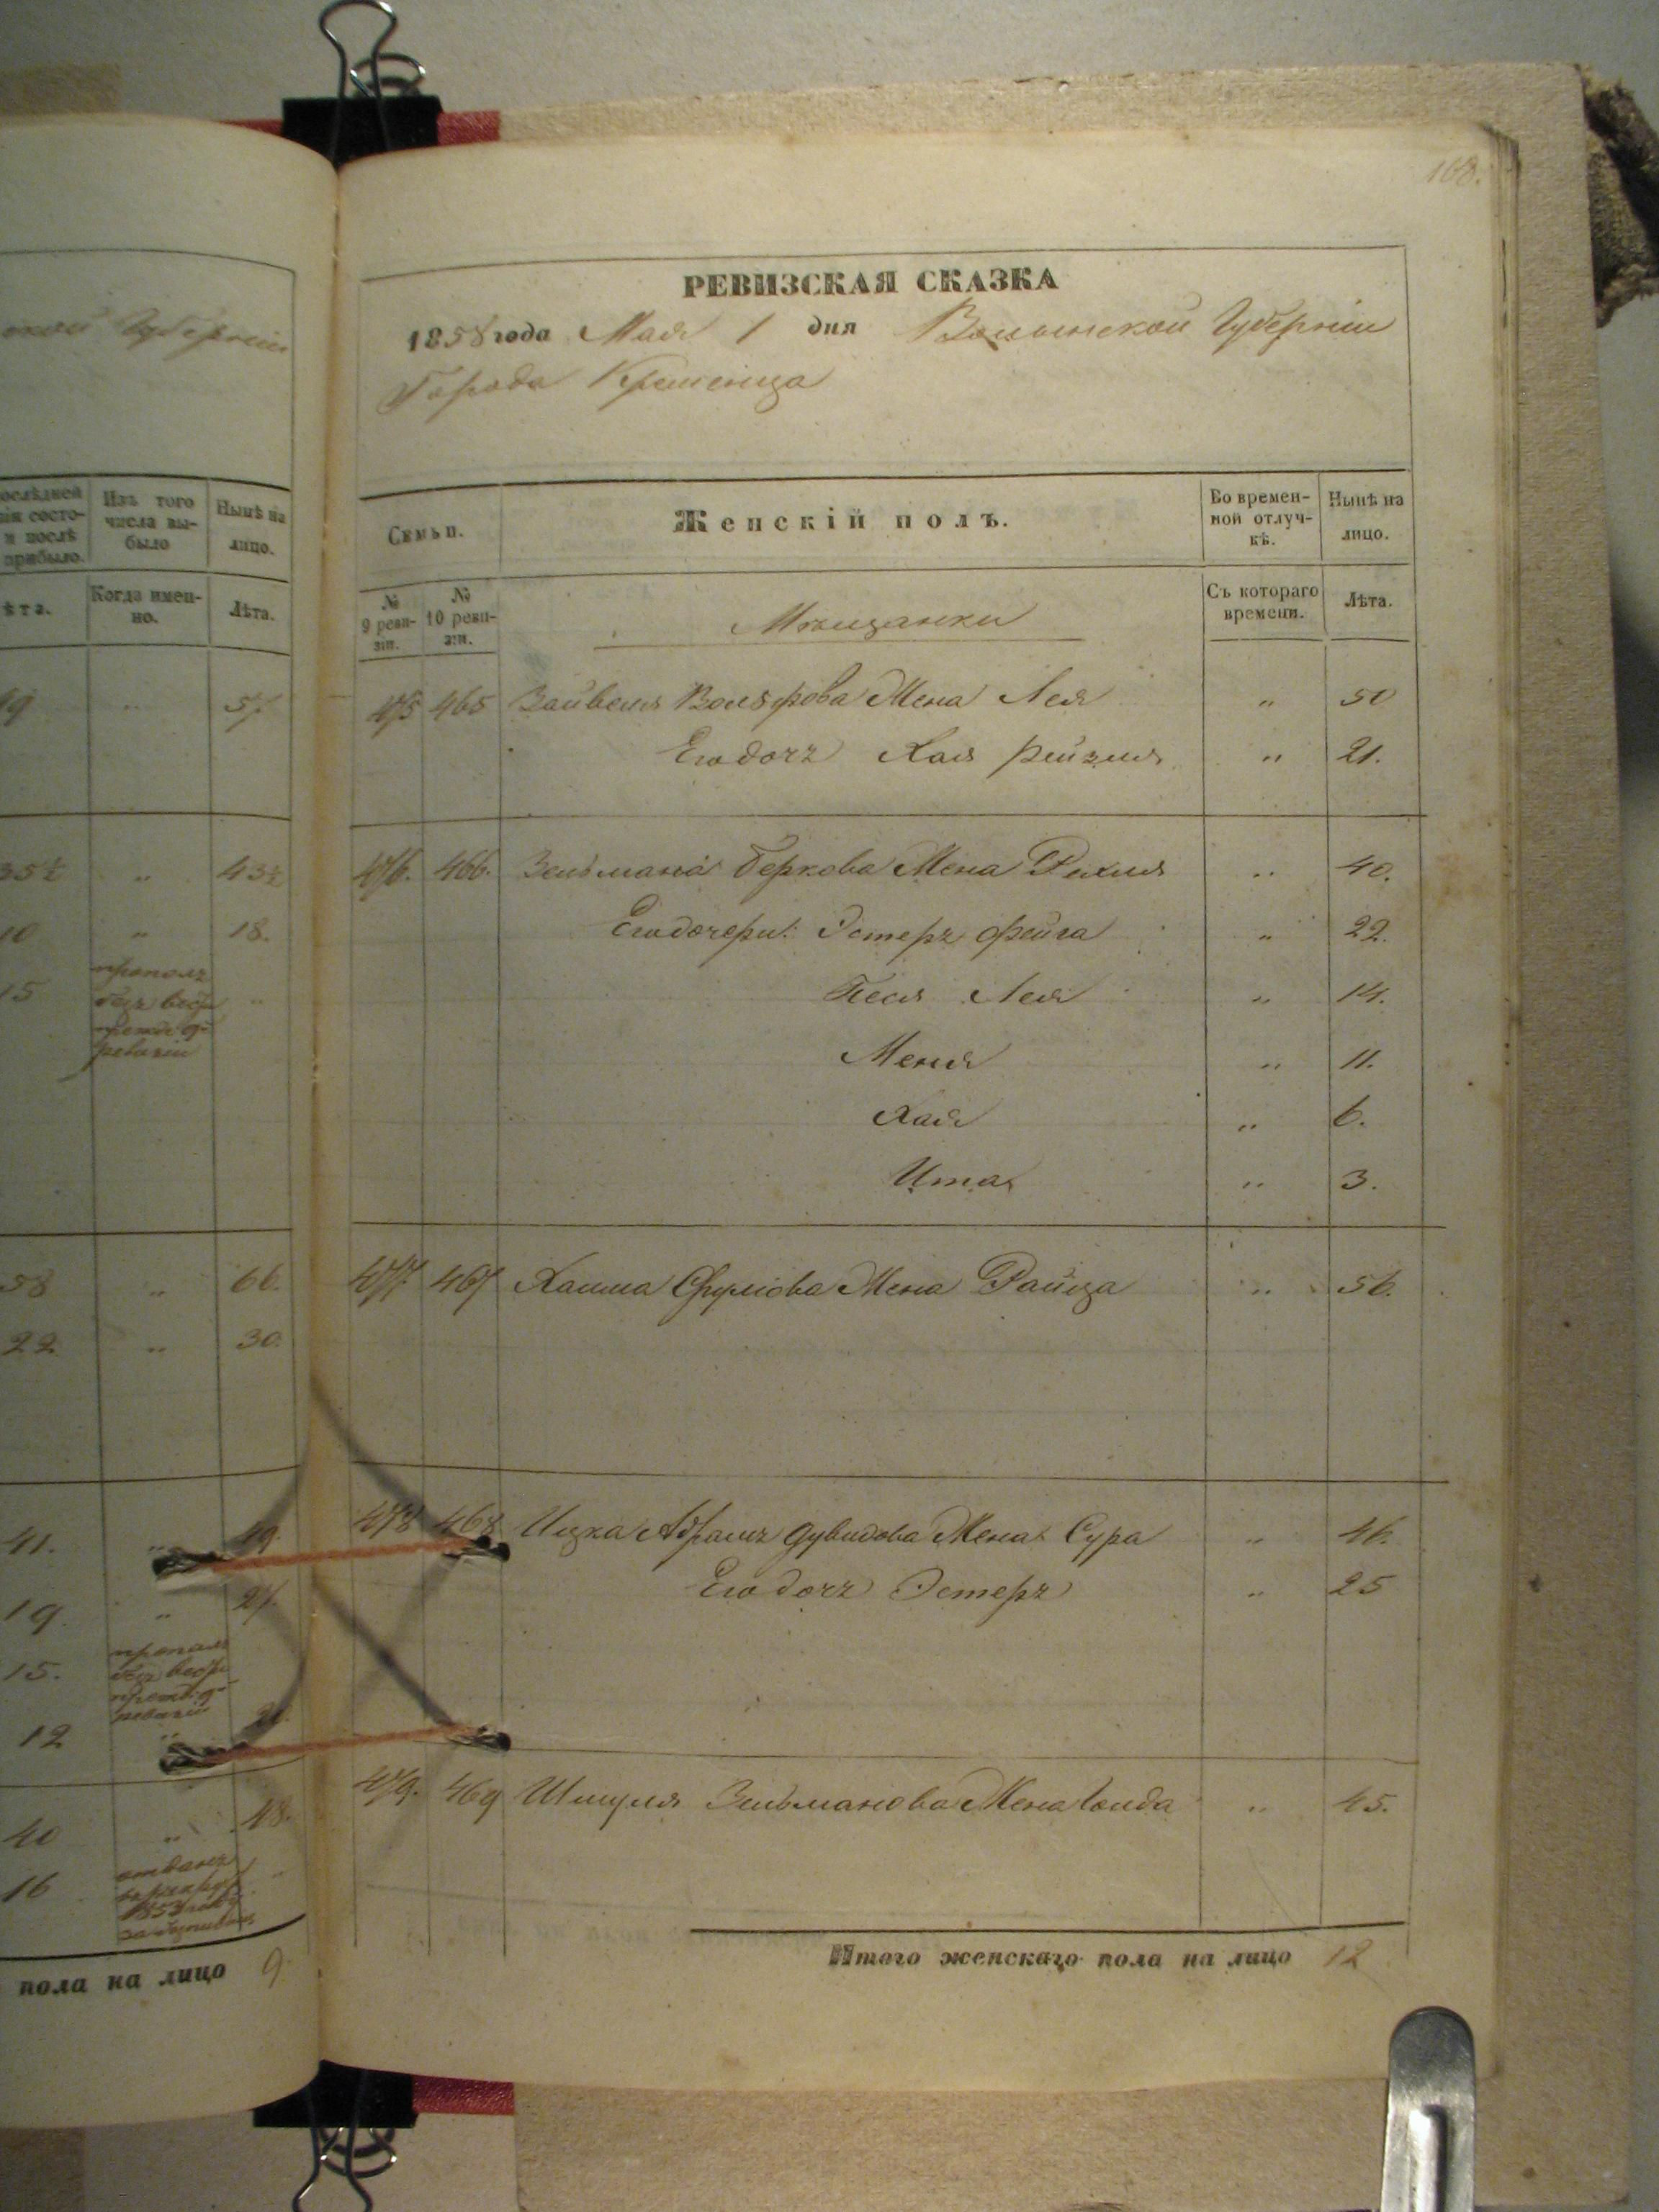 168.
РЕВИЗСКАЯ СКАЗКА
1858 года Мая 1 дня Волынской Губерніи
Города Кременца
Семьи. Женскій полъ. Во времен-ной отлуч-кѣ. Нынѣ на лицо.
№ 9 реви-зіи. № 10 реви-зіи. Мѣщанки Съ котораго времени. Лѣта.
475 465 Зайвеля Вольфова Жена Лея " 50
Его дочь Хая Рейзля " 21.
476. 466. Зельмана Беркова Жена Рихля " 40.
Его дочери: Эстеръ Фейга " 22.
Песя Лея " 14.
Меня " 11.
Хая " 6.
Ита " 3.
477. 467 Хаима Сруліова Жена Райца " 56.
478 468 Ицка Абрамъ Дувидова Жена Сура " 46.
Его дочь Эстеръ " 25
479. 469 Шмуля Зельманова Жена " 45.
Итого женскаго пола на лицо 12
ской Губерніи
ослѣдней
состо-
и послѣ
прибыло.
Изъ того числа вы-было
Нынѣ на лицо.
ѣта. Когда имен-но. Лѣта.
9 " 57.
35½ " 43½
10 " 18.
15 пропалъ "
безъ вести
ревизіи
58 " 66.
22 " 30.
41. " 49.
19. " 27.
15. пропалъ
безъ вести
ревизіи
12 " 20.
40 " 48.
16 "
пола на лицо 9